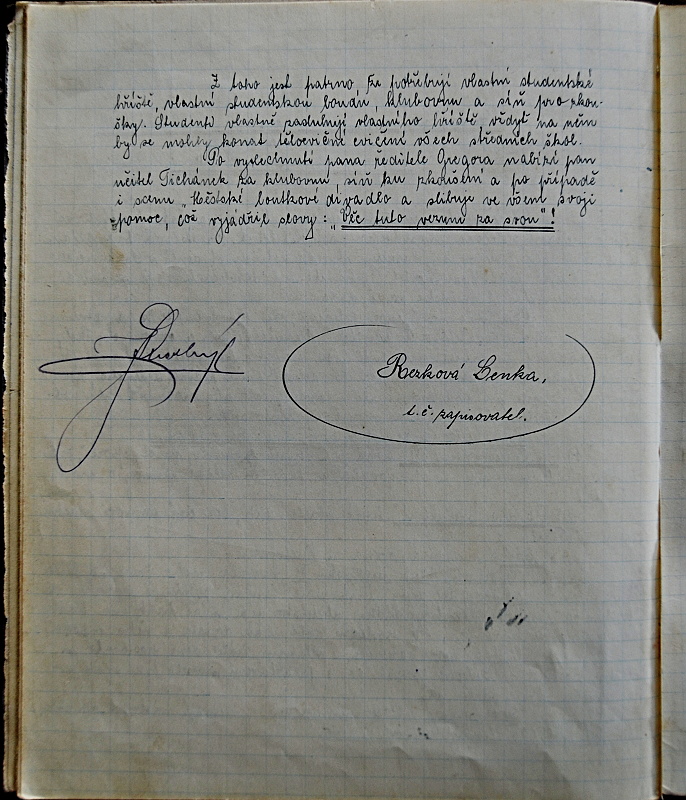 Z toho jest patrno že potřebují vlastní studentské
hřiště, vlastní studentskou boudu, klubovnu a síň pro zkou-
šky. Studenti vlastně zasluhují vlastního hřiště, vždyť na něm
by se mohly konat tělocviční cvičení všech středních škol.
Po vyslechnutí pana ředitele Gregora nabízí pan
učitel Tichánek za klubovnu, síň ku zkoušení a po případě
i scenu „Městské loutkové divadlo a slibuje ve všem svoji
pomoc, což vyjádřil slovy: „Věc tuto vezmu za svou"!
Rezková Lenka,
t.č. zapisovatel.